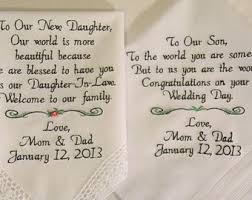 To Our New Daughter,
Our world is more
beautiful because
we are blessed to have you
as our Daughter-In-Law.
Welcome to our family.
Love,
Mom & Dad
January 12, 2013
To Our Son,
To the world you are some
But to us you are the wor
Congratulations on your
Wedding Day.
Love,
Mom & Dad
January 12, 2013